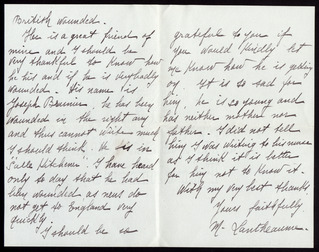 British wounded.
He is a great friend of
mine and I should be
very thankful to know how
he is and if he is very badly
wounded. His name is
Joseph he has been
wounded in the right arm
and thus cannot write much
I should think. He is in
"Salle Kitchener". I have heard
only to day that he had
been wounded as news do
not get to England very
quickly.
I should be so
grateful to you if
you would kindly let
me know how he is getting
on. It is so sad for
him, he is so young and
has neither mother nor
father. I did not tell
him I was writing to his nurse
as I think it is better
for him not to know it.
With my very best thanks
Yours faithfully.
M.